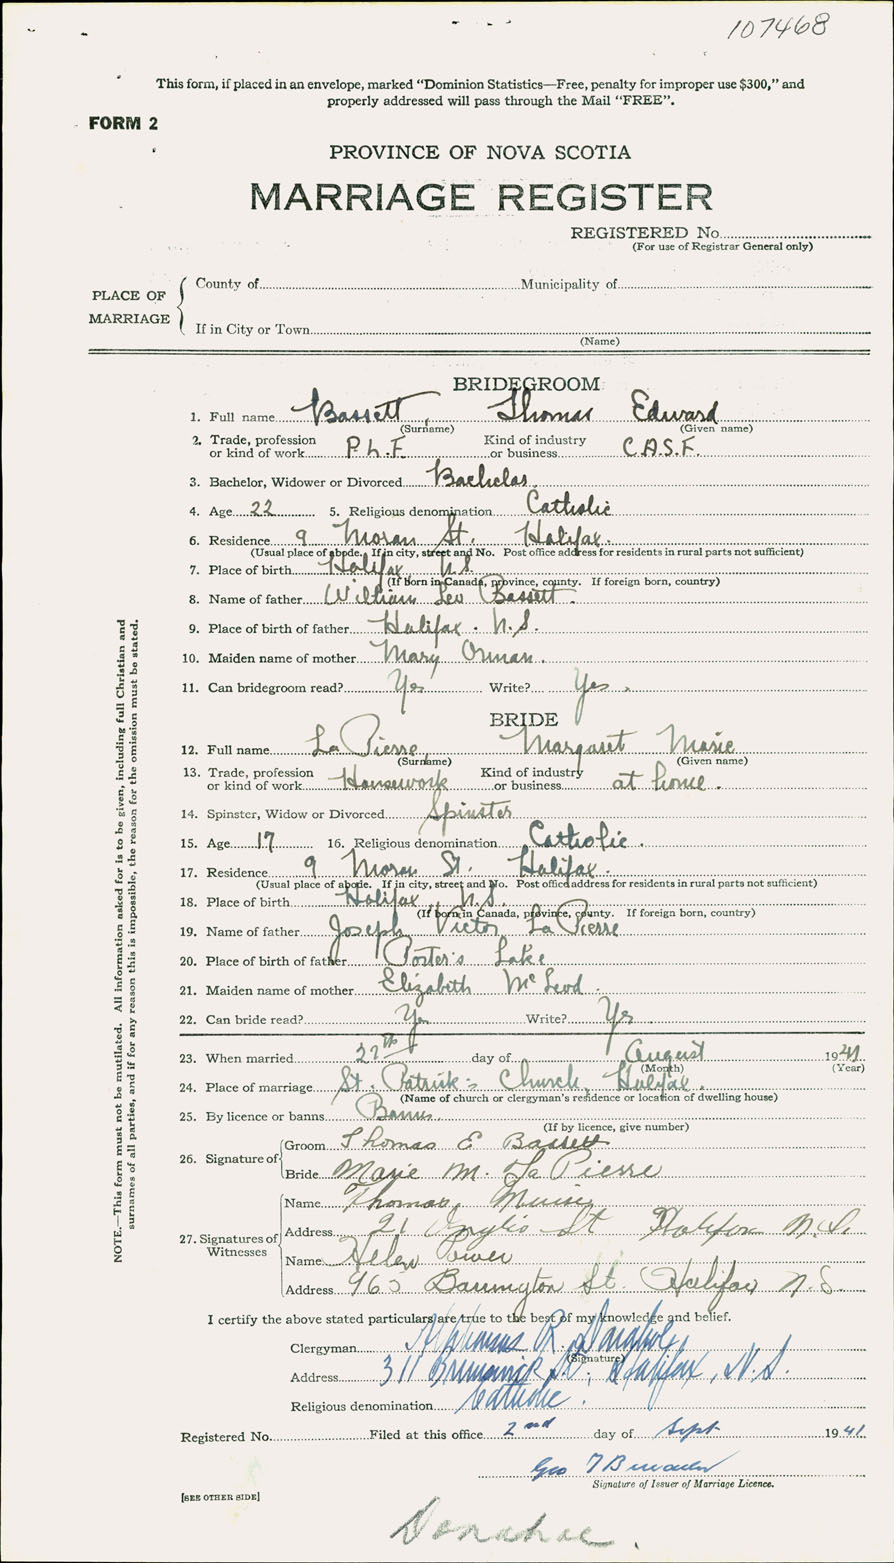 107468
This form, if placed in an envelope, marked "Dominion Statistics—Free, penalty for improper use $300," and
properly addressed will pass through the Mail "FREE".
FORM 2
PROVINCE OF NOVA SCOTIA
MARRIAGE REGISTER
REGISTERED No.
(For use of Registrar General only)
PLACE OF MARRIAGE
County of Municipality of
If in City or Town
(Name)
BRIDEGROOM
1. Full name Bassett, Thomas Edward
(Surname) (Given name)
2. Trade, profession or kind of work P.L.F. Kind of industry or business C.A.S.F.
3. Bachelor, Widower or Divorced Bachelor.
4. Age 22 5. Religious denomination Catholic
6. Residence 9 Moran St. Halifax.
(Usual place of abode. If in city, street and No. Post office address for residents in rural parts not sufficient)
7. Place of birth Halifax, N.S.
(If born in Canada, province, county. If foreign born, country)
8. Name of father William Leo Bassett.
9. Place of birth of father Halifax. N.S.
10. Maiden name of mother Mary Orman.
11. Can bridegroom read? Yes Write? Yes.
BRIDE
12. Full name La Pierre, Margaret Marie
(Surname) (Given name)
13. Trade, profession or kind of work Housework Kind of industry or business at home.
14. Spinster, Widow or Divorced Spinster
15. Age 17 16. Religious denomination Catholic.
17. Residence 9 Moran St. Halifax.
(Usual place of abode. If in city, street and No. Post office address for residents in rural parts not sufficient)
18. Place of birth Halifax, N.S.
(If born in Canada, province, county. If foreign born, country)
19. Name of father Joseph Victor La Pierre
20. Place of birth of father Porter's Lake
21. Maiden name of mother Elizabeth McLeod.
22. Can bride read? Yes Write? Yes.
23. When married 27th day of August 1941
(Month) (Year)
24. Place of marriage St. Patrick's Church, Halifax.
(Name of church or clergyman's residence or location of dwelling house)
25. By licence or banns Banns.
(If by licence, give number)
26. Signature of
Groom Thomas E Bassett
Bride Marie M. La Pierre
27. Signatures of Witnesses
Name Thomas
Address 21 St Halifax N.S.
Name Helen Power
Address 965 Barrington St. Halifax N.S.
I certify the above stated particulars are true to the best of my knowledge and belief.
Clergyman Alphonsus R. Donahoe,
(Signature)
Address 311 Brunswick St., Halifax, N.S.
Religious denomination Catholic.
Registered No. Filed at this office 2nd day of Sept 1941
Geo
Signature of Issuer of Marriage Licence.
[SEE OTHER SIDE]
Donahoe.
NOTE.—This form must not be mutilated. All information asked for is to be given, including full Christian and
surnames of all parties, and if for any reason this is impossible, the reason for the omission must be stated.